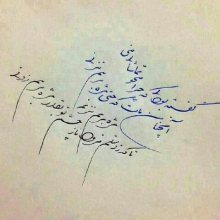 گفته بودی که چرا محو تماشای منی
آنچنان مات که حتی مژه بر هم نزنی
مژه بر هم نزنم تا که ز دستم نرود
ناز چشم تو بقدر مژه بر هم زدنی